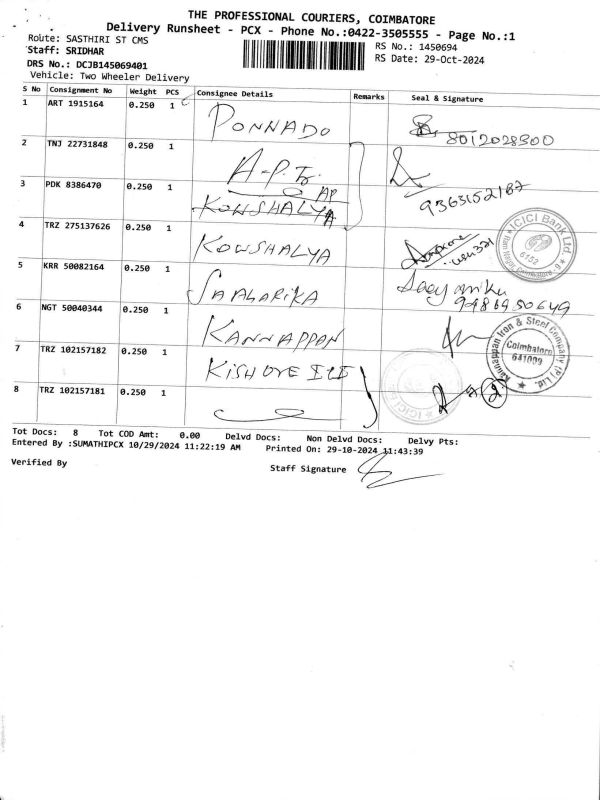 THE PROFESSIONAL COURIERS, COIMBATORE
Delivery Runsheet - PCX - Phone No.:0422-3505555 - Page No.:1
Route: SASTHIRI ST CMS
RS No.: 1450694
Staff: SRIDHAR
RS Date: 29-Oct-2024
DRS No.: DCJB145069401
Vehicle: Two Wheeler Delivery
S No Consignment No Weight PCS Consignee Details Remarks Seal & Signature
1 ART 1915164 0.250 1 PONNADO 8012028300
2 TNJ 22731848 0.250 1
3 PDK 8386470 0.250 1 KOWSHALYA 9363152187
4 TRZ 275137626 0.250 1 KOWSHALYA
ICICI Bank Ltd.
6152
5 KRR 50082164 0.250 1 SAAGARIKA
9486950649
6 NGT 50040344 0.250 1 KANNAPPAN
Kannappan Iron & Steel Company (P) Ltd.
Coimbatore
641009
7 TRZ 102157182 0.250 1 KISHORE
8 TRZ 102157181 0.250 1
Tot Docs: 8 Tot COD Amt: 0.00 Delvd Docs: Non Delvd Docs: Delvy Pts:
Entered By :SUMATHIPCX 10/29/2024 11:22:19 AM Printed On: 29-10-2024 11:43:39
Verified By
Staff Signature